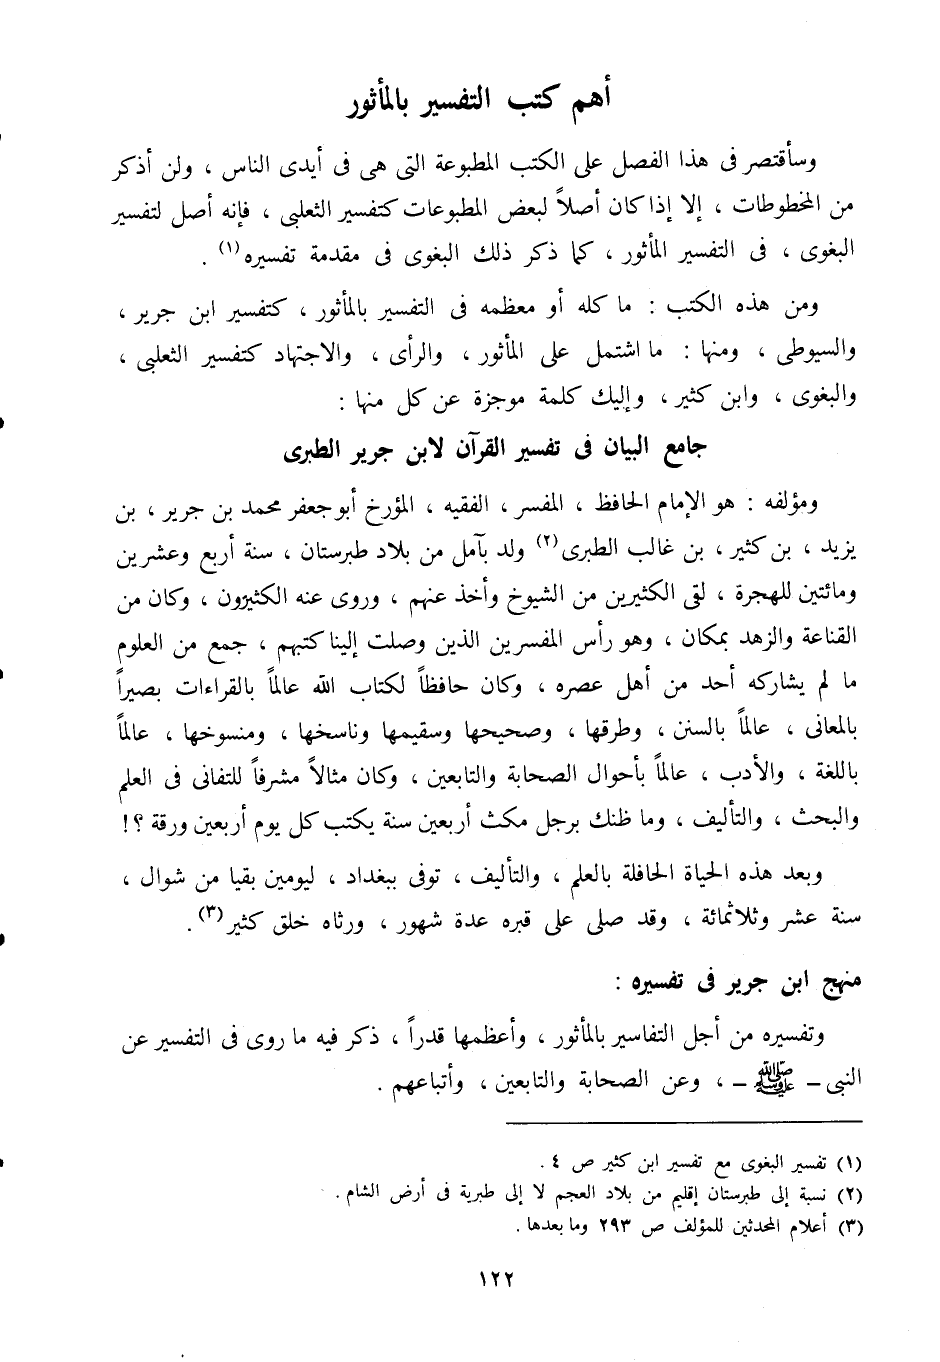 أهم كتب التفسير بالمأثور
وسأقتصر فى هذا الفصل على الكتب المطبوعة التى هى فى أيدى الناس ، ولن أذكر
من المخطوطات ، إلا إذا كان أصلاً لبعض المطبوعات كتفسير الثعلبى ، فإنه أصل لتفسير
البغوى ، فى التفسير المأثور ، كما ذكر ذلك البغوى فى مقدمة تفسيره (١) .
ومن هذه الكتب : ما كله أو معظمه فى التفسير بالمأثور ، كتفسير ابن جرير ،
والسيوطى ، ومنها : ما اشتمل على المأثور ، والرأى ، والاجتهاد كتفسير الثعلبى ،
والبغوى ، وابن كثير ، وإليك كلمة موجزة عن كل منها :
جامع البيان فى تفسير القرآن لابن جرير الطبرى
ومؤلفه : هو الإمام الحافظ ، المفسر ، الفقيه ، المؤرخ أبو جعفر محمد بن جرير ، بن
يزيد ، بن كثير ، بن غالب الطبرى (٢) ولد بآمل من بلاد طبرستان ، سنة أربع وعشرين
ومائتين للهجرة ، لقى الكثيرين من الشيوخ وأخذ عنهم ، وروى عنه الكثيرون ، وكان من
القناعة والزهد بمكان ، وهو رأس المفسرين الذين وصلت إلينا كتبهم ، جمع من العلوم
ما لم يشاركه أحد من أهل عصره ، وكان حافظاً لكتاب الله عالماً بالقراءات بصيراً
بالمعانى ، عالماً بالسنن ، وطرقها ، وصحيحها وسقيمها وناسخها ، ومنسوخها ، عالماً
باللغة ، والأدب ، عالماً بأحوال الصحابة والتابعين ، وكان مثالاً مشرفاً للتفانى فى العلم
والبحث ، والتأليف ، وما ظنك برجل مكث أربعين سنة يكتب كل يوم أربعين ورقة ؟!
وبعد هذه الحياة الحافلة بالعلم ، والتأليف ، توفى ببغداد ، ليومين بقيا من شوال ،
سنة عشر وثلاثمائة ، وقد صلى على قبره عدة شهور ، ورثاه خلق كثير (٣) .
منهج ابن جرير فى تفسيره :
وتفسيره من أجل التفاسير بالمأثور ، وأعظمها قدراً ، ذكر فيه ما روى فى التفسير عن
النبى – ﷺ – ، وعن الصحابة والتابعين ، وأتباعهم .
(١) تفسير البغوى مع تفسير ابن كثير ص ٤ .
(٢) نسبة إلى طبرستان إقليم من بلاد العجم لا إلى طبرية فى أرض الشام .
(٣) أعلام المحدثين للمؤلف ص ٢٩٣ وما بعدها .
١٢٢